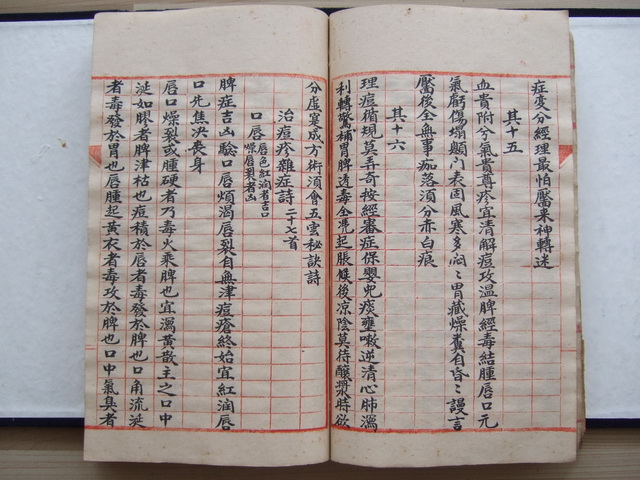 症变分經理最怕靨来神轉迷
其十五
血貴附兮氣貴尊疹宜清解痘攻温脾經毒結腫唇口元
氣虧傷塌顖门表固風寒多悶〻胃藏燥糞自昏〻謾言
靨後全無事痂落須分赤白痕
其十六
理痘循規莫弄奇按經審症保嬰児痰壅嗽逆清心肺瀉
利轉驚補胃脾透毒全凴起脹候後凉陰莫待釀漿時欲
分虛寔成方術須會五雲秘訣詩
治痘疹雜症詩二十七首
口唇唇色紅润者吉口燥唇裂者凶
脾症吉凶驗口唇煩渴唇裂自無津痘瘡終始宜紅润唇
口先焦决丧身
唇口燥裂或腫硬者乃毒火乘脾也宜瀉黄散主之口中
涎如膠者脾津枯也痘積於唇者毒發於脾也口角流涎
者毒發於胃也唇腫起黄衣者毒攻於脾也口中氣臭者